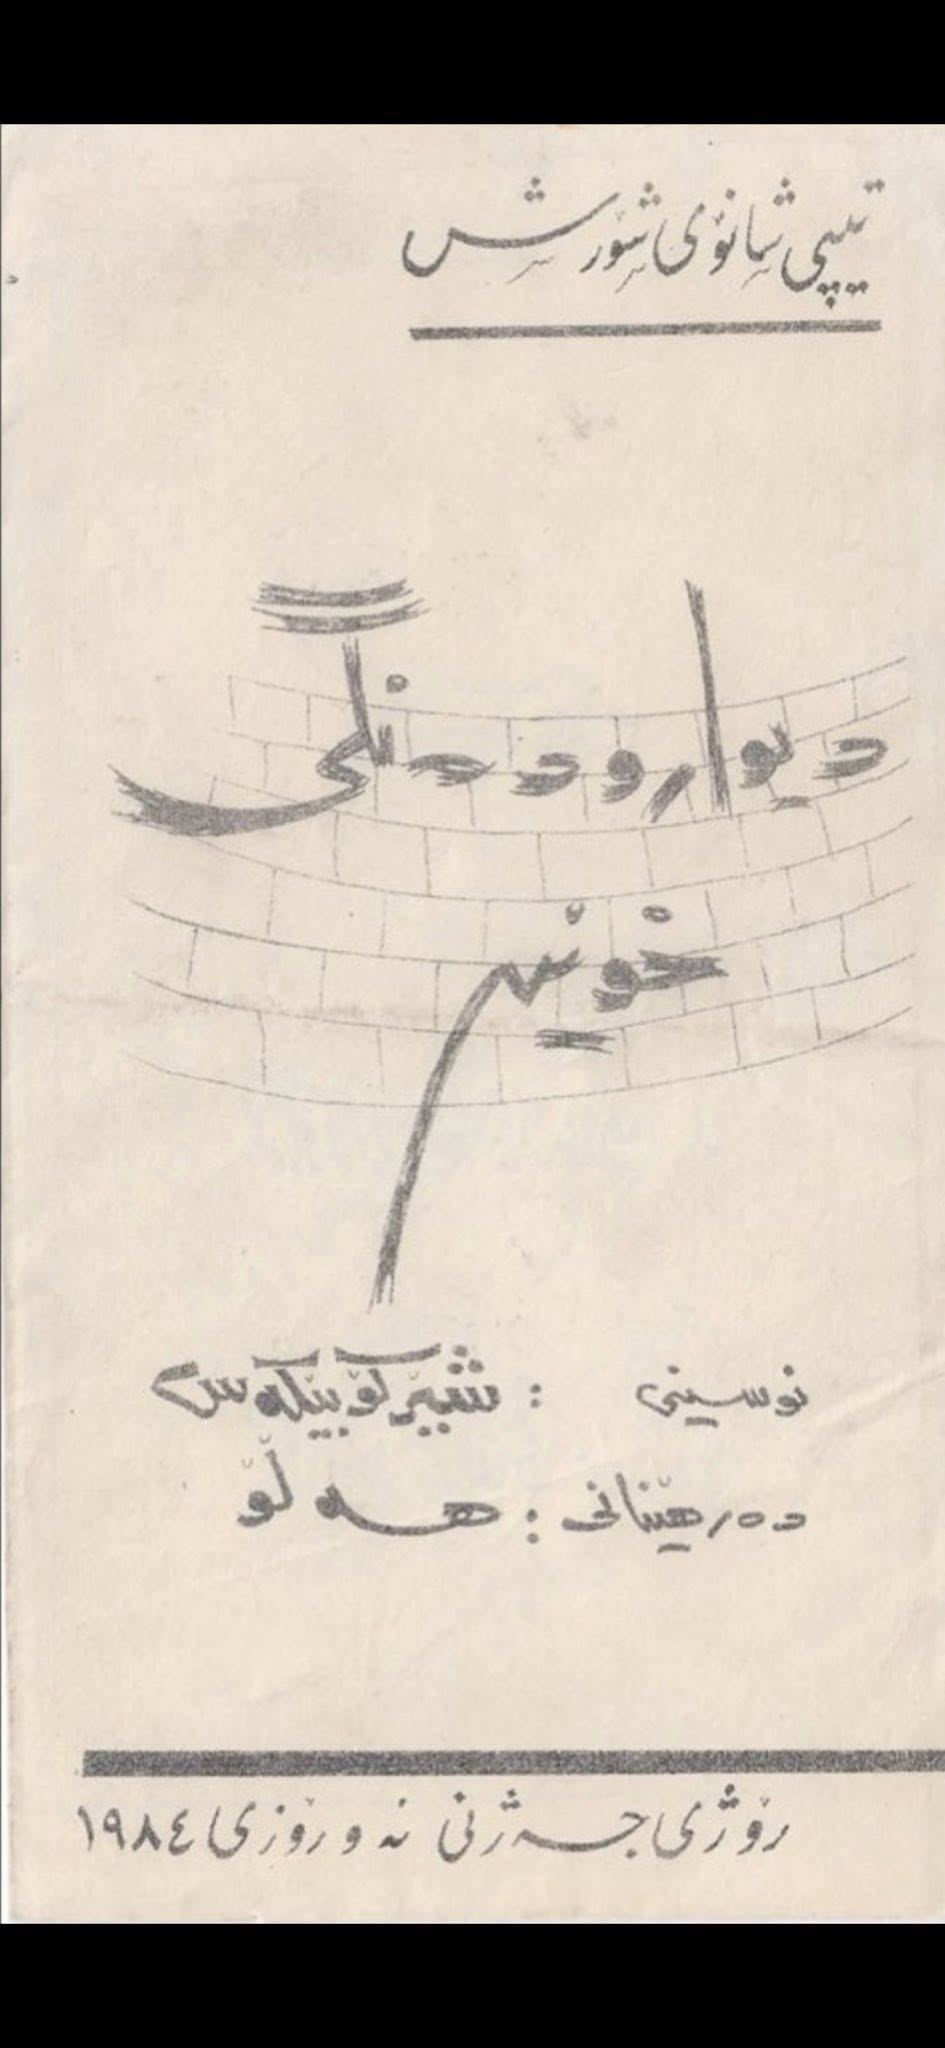 تیپی شانۆی شۆرش
دیوار و دەنگی
خوێن
نوسینی : شێرکۆ بێکەس
دەرهێنانی : هەڵۆ
رۆژی جەژنی نەورۆزی ١٩٨٤